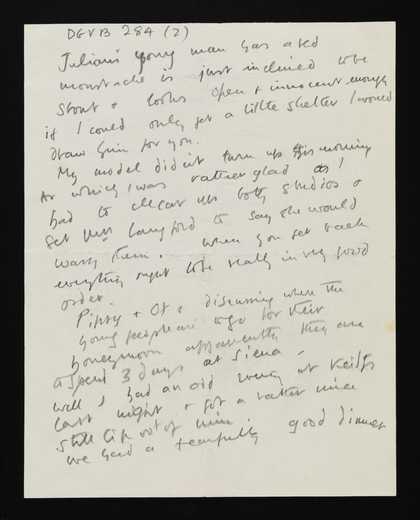 DGVB 284 (2)
Julian's young man has a red
moustache is just inclined to be
stout & looks open & innocent enough
if I could only get a little shelter I would
draw him for you.
My model didn't turn up this morning
At which I was rather glad as I
had to clear up both studios &
get Mrs Langford to say she would
wash them. When you get back
everything ought to be really in very good
order.
& discussing where the
young people are to go for their
honeymoon apparently they are
spend 3 days at Siena.
Well I had an old at
last night & got a rather nice
still life out of him.
We had a fearfully good dinner